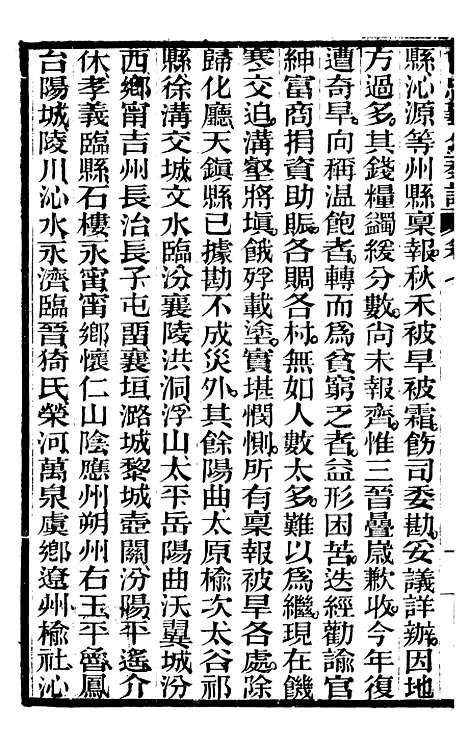 縣沁源等州縣稟報秋禾被旱被霜飭司委勘妥議詳辦因地
方過多其錢糧蠲緩分數尚未報齊惟三晉疊歲歉收今年復
遭奇旱向稱温飽者轉而爲貧窮乏者益形困苦迭經勸諭官
紳富商捐資助賑各賙各村無如人數太多難以爲繼現在饑
寒交迫溝壑將塡餓殍載塗實堪憫惻所有稟報被旱各處除
歸化廳天鎮縣已據勘不成災外其餘陽曲太原榆次太谷祁
縣徐溝交城文水臨汾襄陵洪洞浮山太平岳陽曲沃翼城汾
西鄉甯吉州長治長子屯畱襄垣潞城黎城壺關汾陽平遙介
休孝義臨縣石樓永甯甯鄉懷仁山陰應州朔州右玉平魯鳳
台陽城陵川沁水永濟臨晉猗氏榮河萬泉虞鄉遼州榆社沁